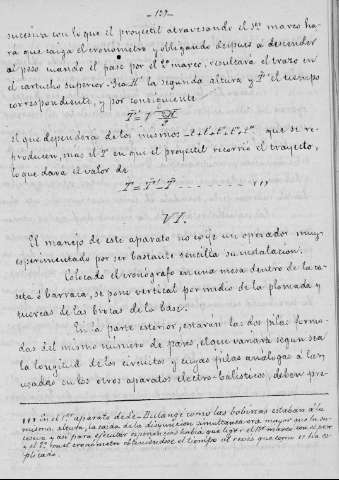 - 129 -
sucesiva con lo que el proyectil atravesando el 1er marco ha-
rá que caiga el cronómetro y obligando después a descender
al peso cuando él pase por el 2º marco, resultará el trazo en
el cartucho superior. Sea H' la segunda altura y T' el tiempo
correspondiente, y por consiguiente
el que dependerá de los mismos que se re-
producen, mas el T en que el proyectil recorrió el trayecto,
lo que dará el valor de
T = T' - T
VI.
El manejo de este aparato no exije un operador muy
esperimentado por ser bastante sencilla su instalacion.
Colocado el cronógrafo en una mesa dentro de la ca-
seta ó barraca, se pone vertical por medio de la plomada y
tuercas de las brotas de la base.
En la parte esterior, estarán las dos pilas forma-
das del mismo número de pares, el que variará segun sea
la longitud de los circuitos y cuyas pilas análogas á las
usadas en los otros aparatos electro-balísticos, deben pre-
En el 1er aparato de Le-Boulangé como las bobinas estaban á la
misma altura, la caida de la disyuncion simultanea era mayor que la su-
cesiva y así para ejecutar esperiencias habia que ligar el 1er marco con el peso
y el 2º con el cronómetro obteniéndose el tiempo al revés que como se ha es-
plicado.